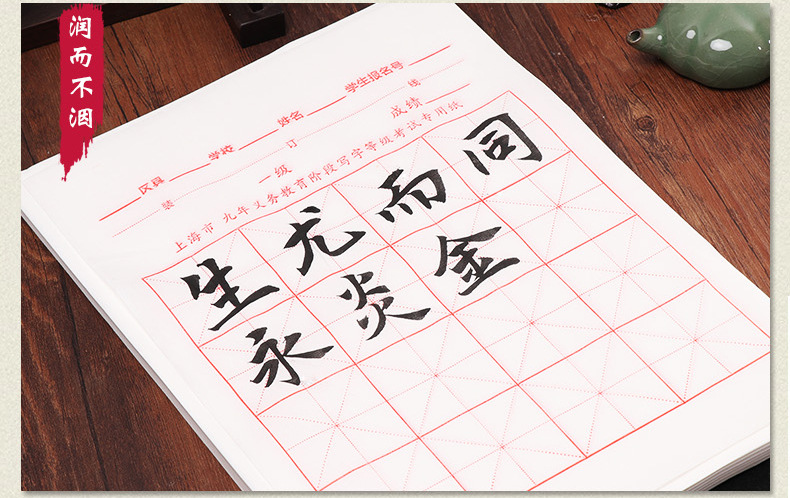 润而不洇
区县 学校 姓名 学生报名号
装 订 线
一级 成绩
上海市九年义务教育阶段写字等级考试专用纸
生尤而同
永炎金